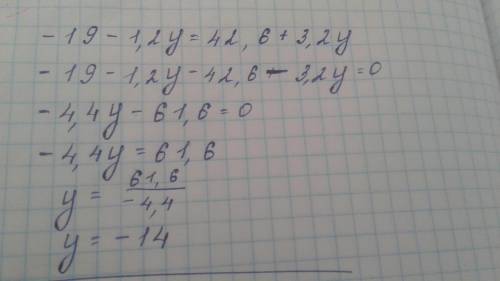 -19-1,2y=42,6+3,2y
-19-1,2y-42,6-3,2y=0
-4,4y-61,6=0
-4,4y=61,6
y=61,6/-4,4
y=-14